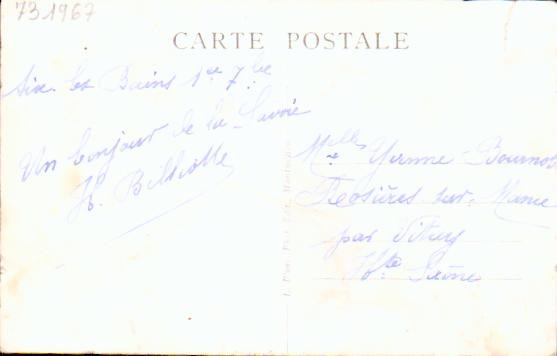 731967
CARTE POSTALE
Aix les Bains 1er 7bre
Un bonjour de la Savoie
H. Billiotte
Melles Yvonne Bournot
Rosières sur Marne
par Vitry
Hte Saône